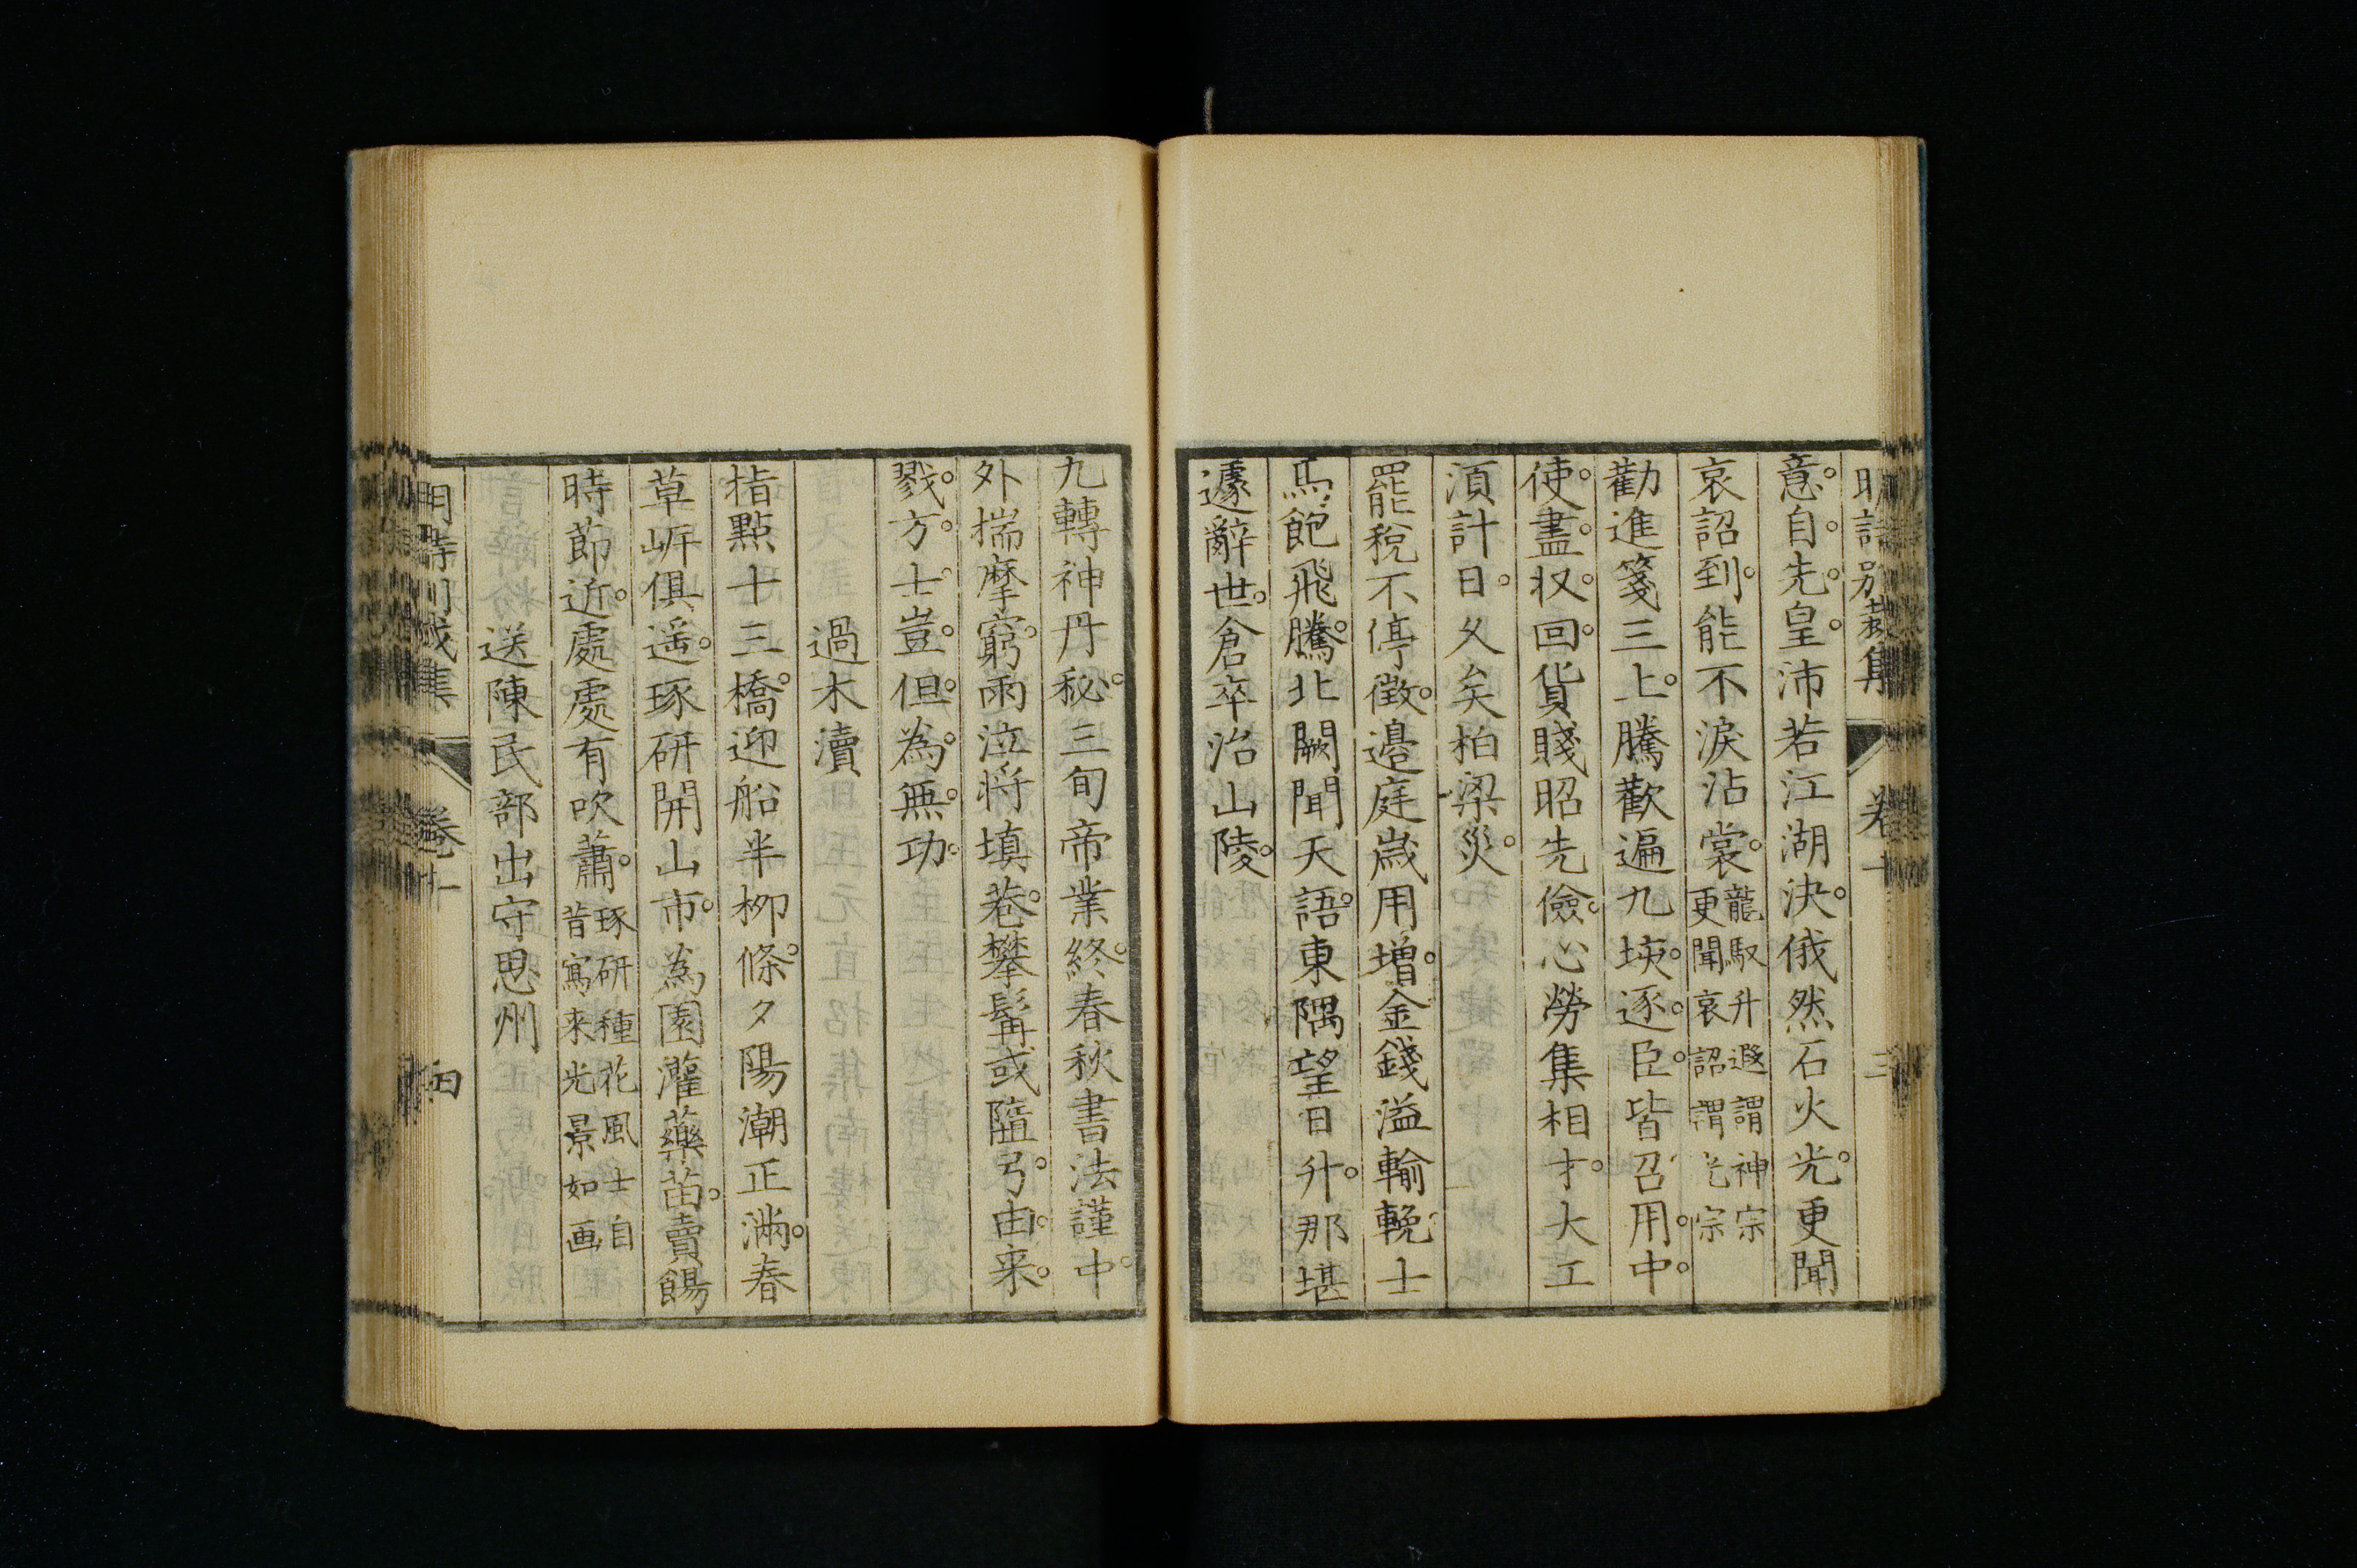 意自先皇沛若江湖決俄然石火光更聞
哀詔到能不淚沾裳龍馭升遐謂神宗更聞哀詔謂光宗
勸進箋三上騰歡遍九垓逐臣皆召用中
使盡収回貨賤昭先儉心勞集相才大工
湏計日久矣柏梁災
罷稅不停徵邉庭歳用增金錢溢輸輓士
馬飽飛騰北闕聞天語東隅望日升那堪
遽辭世倉卒治山陵
九轉神丹秘三旬帝業終春秋書法謹中
外揣摩窮雨泣將填巷攀髯或隨弓由来
戮方士豈但為無功
過木瀆
指點十三橋迎船半栁條夕陽潮正滿春
草岸俱遥琢研開山市為園灌藥苗賣餳
時節近處處有吹蕭琢研種花風士自昔寫来光景如画
送陳民部出守思州
卷十